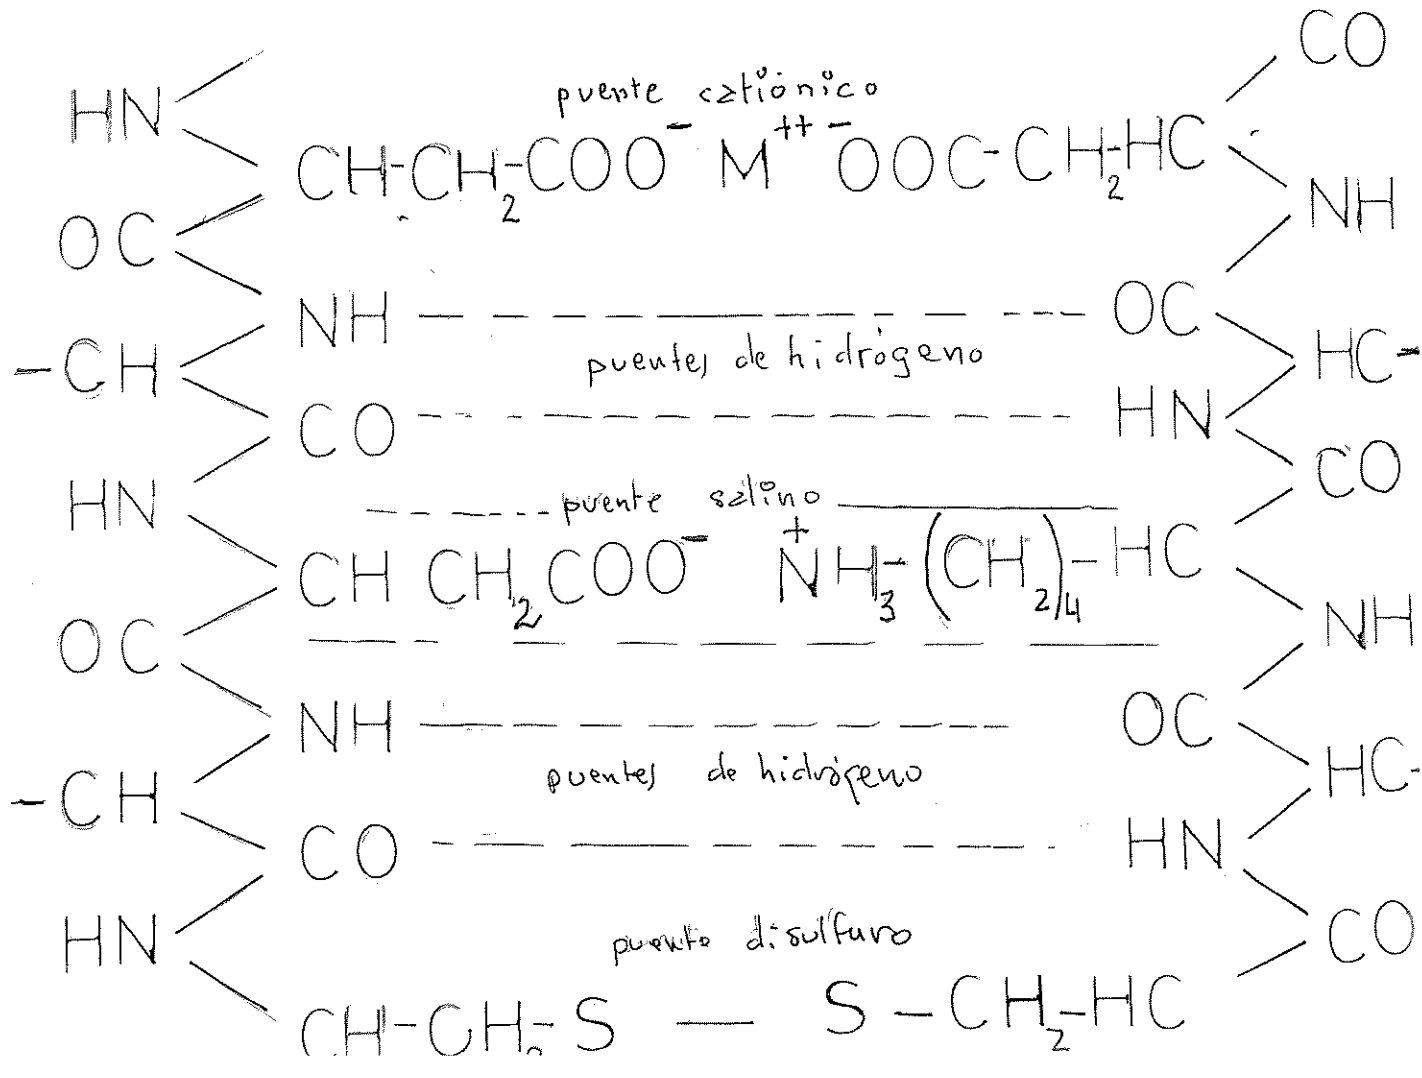 CO
puente catiónico
HN
CH-CH2-COO- M++ -OOC-CH2-HC
NH
OC
NH OC
puentes de hidrógeno
-CH HC-
CO HN
CO
puente salino
HN
CH CH2COO- +NH3-(CH2)4-HC
OC NH
NH OC
puentes de hidrógeno
-CH HC-
CO HN
puente disulfuro
HN CO
CH-CH2-S — S-CH2-HC